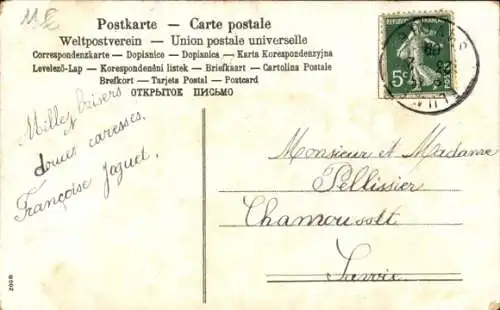 Postkarte — Carte postale
Weltpostverein — Union postale universelle
Correspondenzkarte — Dopisnice — Dopisnica — Karta Korespondenzyjna
Levelező-Lap — Korespondenční listek — Briefkaart — Cartolina Postale
Brefkort — Tarjeta Postal — Postcard
ОТКРЫТОЕ ПИСЬМО
REPUBLIQUE FRANÇAISE
5c
Milles baisers
douces caresses.
Françoise Jaguet.
Monsieur et Madame
Pellissier
Chamousset
Savoie